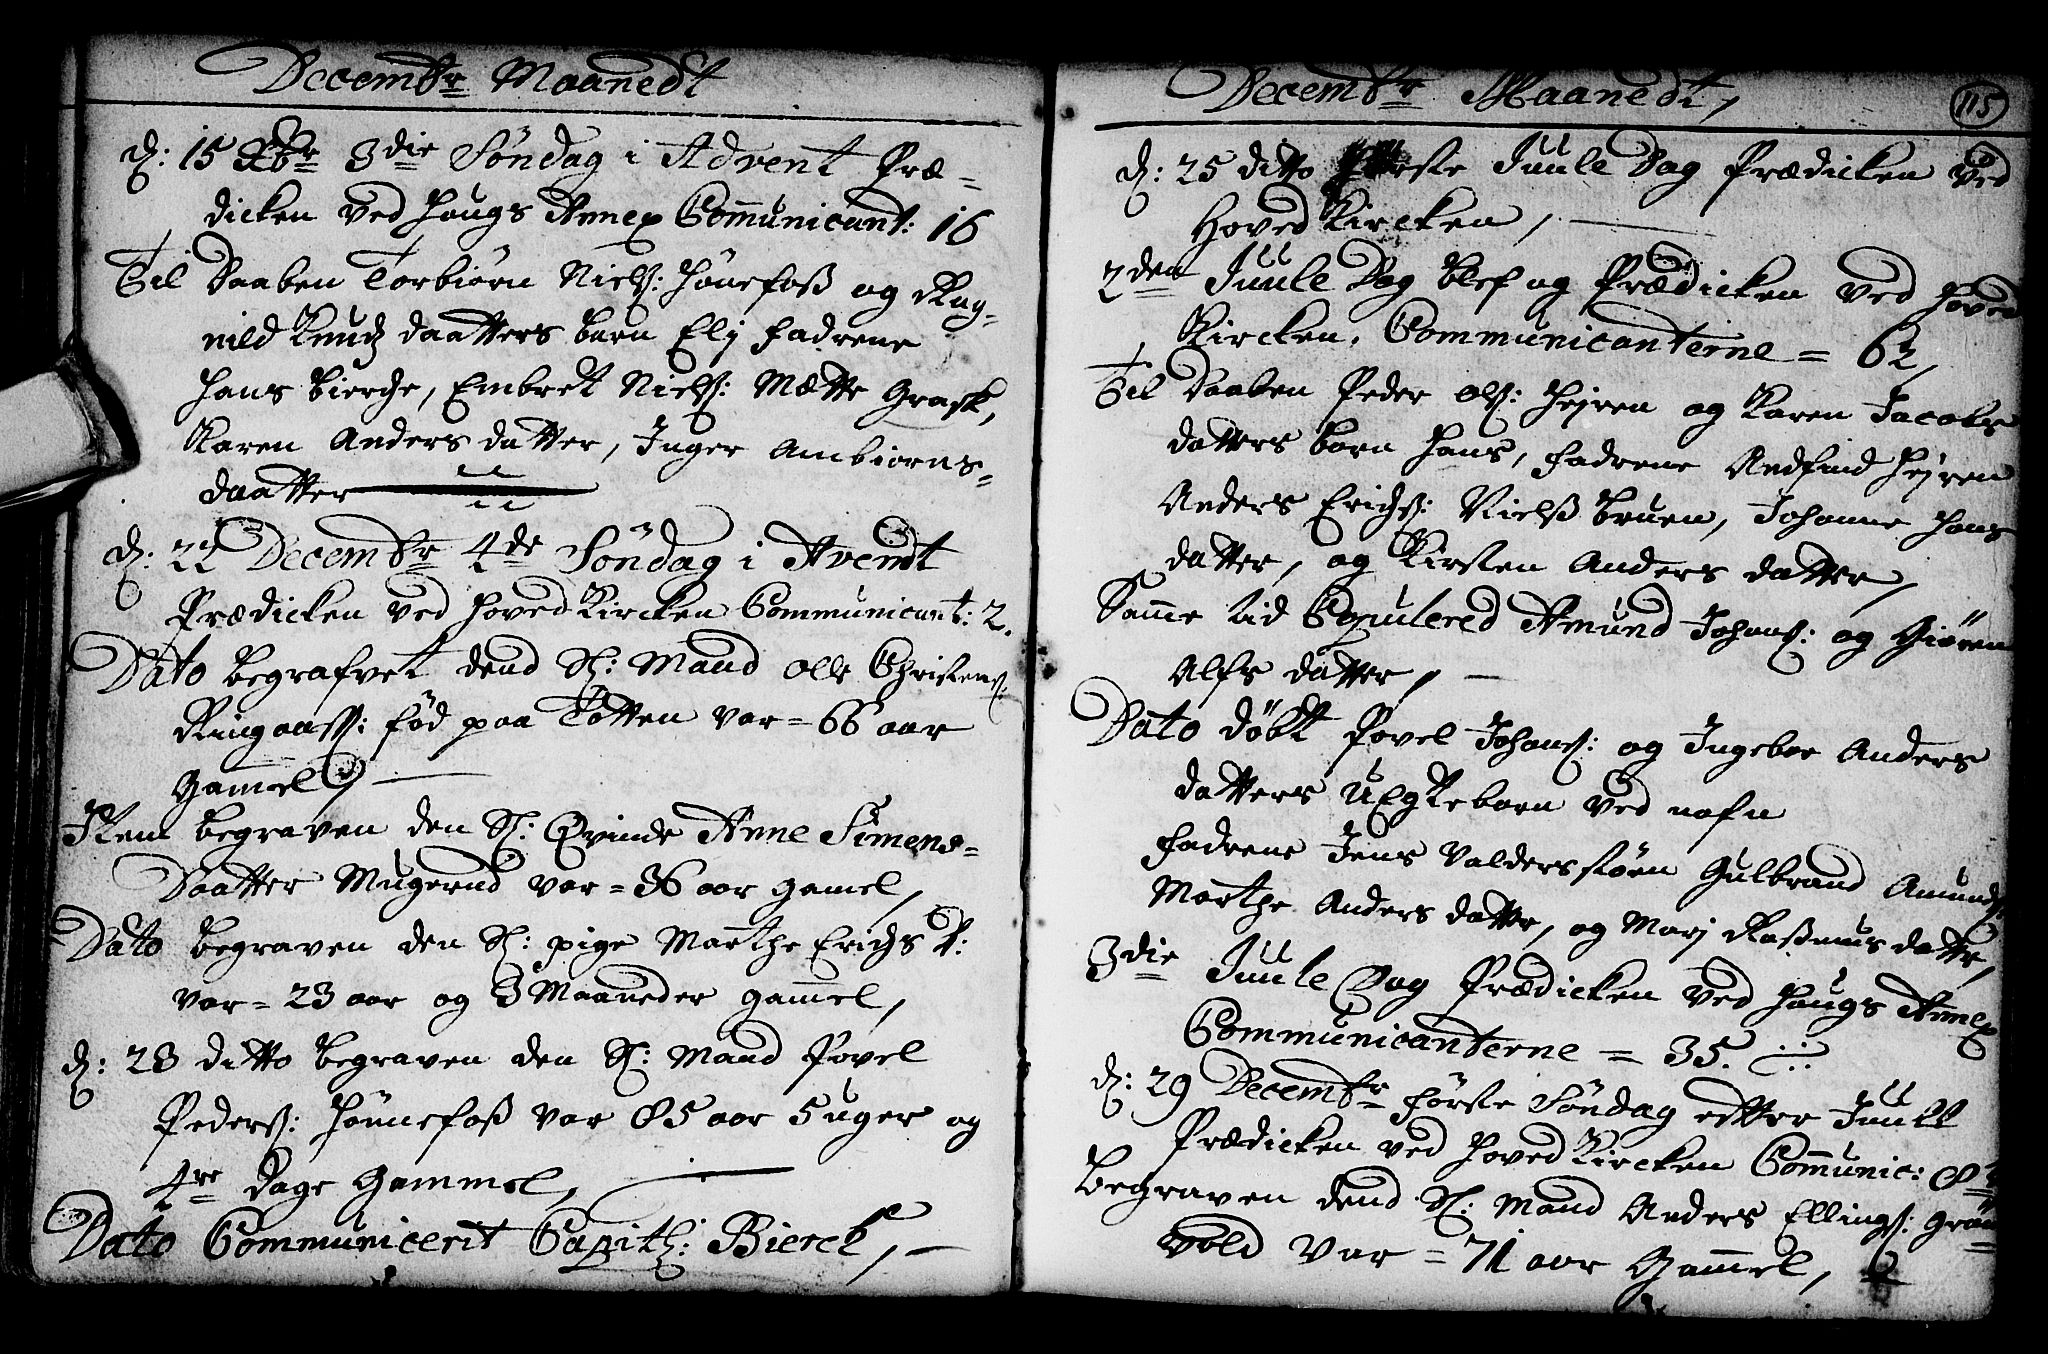 Decembr Maanedt
d: 15 Xbr 3die Söndag i Advent Præ=
dicken ved Hougs Annex Com̄unicant: 16
Til Daaben Torbiørn Niels: Hønefoß og Rag=
nild Knudz daatters barn Elj fadrene
Hans bierche, Embret Niels: Mætte Grask,
Karen Anders datter, Inger Ambiørns=
daatter
d: 22 Decembr 4de Söndag i Avendt
Prædicken ved Hoved Kircken Communicant: 2.
Dato begrafvet dend Sl: Mand Olle Christens:
Ringaass: fød paa Totten var = 66 aar
Gam̄el
Item begraven den Sl: Qvinde Anne Simens=
Daatter Mugerud var = 36 aar gamel,
Dato begraven den Sl: pige Marthe Erichs D:
var = 23 aar og 3 Maaneder gam̄el,
d: 28 ditto begraven den Sl: Mand Povel
Peders: Hønnefoß var 85 aar 5 uger og
4re dage Gammel,
Dato Communicerit Capith: Bierck,
Decembr Maanedt,
115
d: 25 ditto første Juule Dag Prædicken ved
Hoved Kircken,
2den Juule Dag blef og Prædicken ved Hoved
Kircken, Communicanterne = 62,
Til Daaben Peder Ols: Hejren og Karen Jacobs
datters barn Hans, fadrene Redfind Hejren
Anders Erichs: Nielß bruen, Johanne Hans
datter, og Kirsten Anders datter,
Sam̄e tid Copulered Amund Johans: og Giøren
Alfs datter,
Dato döbt Povel Johans: og Ingebor Anders
datters uEgte barn ved nafn
fadrene Jens Valdersköen Gulbrand Amunds:
Marthe Anders datter, og Marj Raßmus datter,
3die Juule Dag Prædicken ved Hougs Annex
Communicanterne = 35.
d: 29 Decembr første Söndag efter Juull
Prædicken ved Hoved Kircken Com̄unic:
begraven dend Sl: Mand Anders Ellings: Grøn=
vold var = 71 aar Gam̄el,